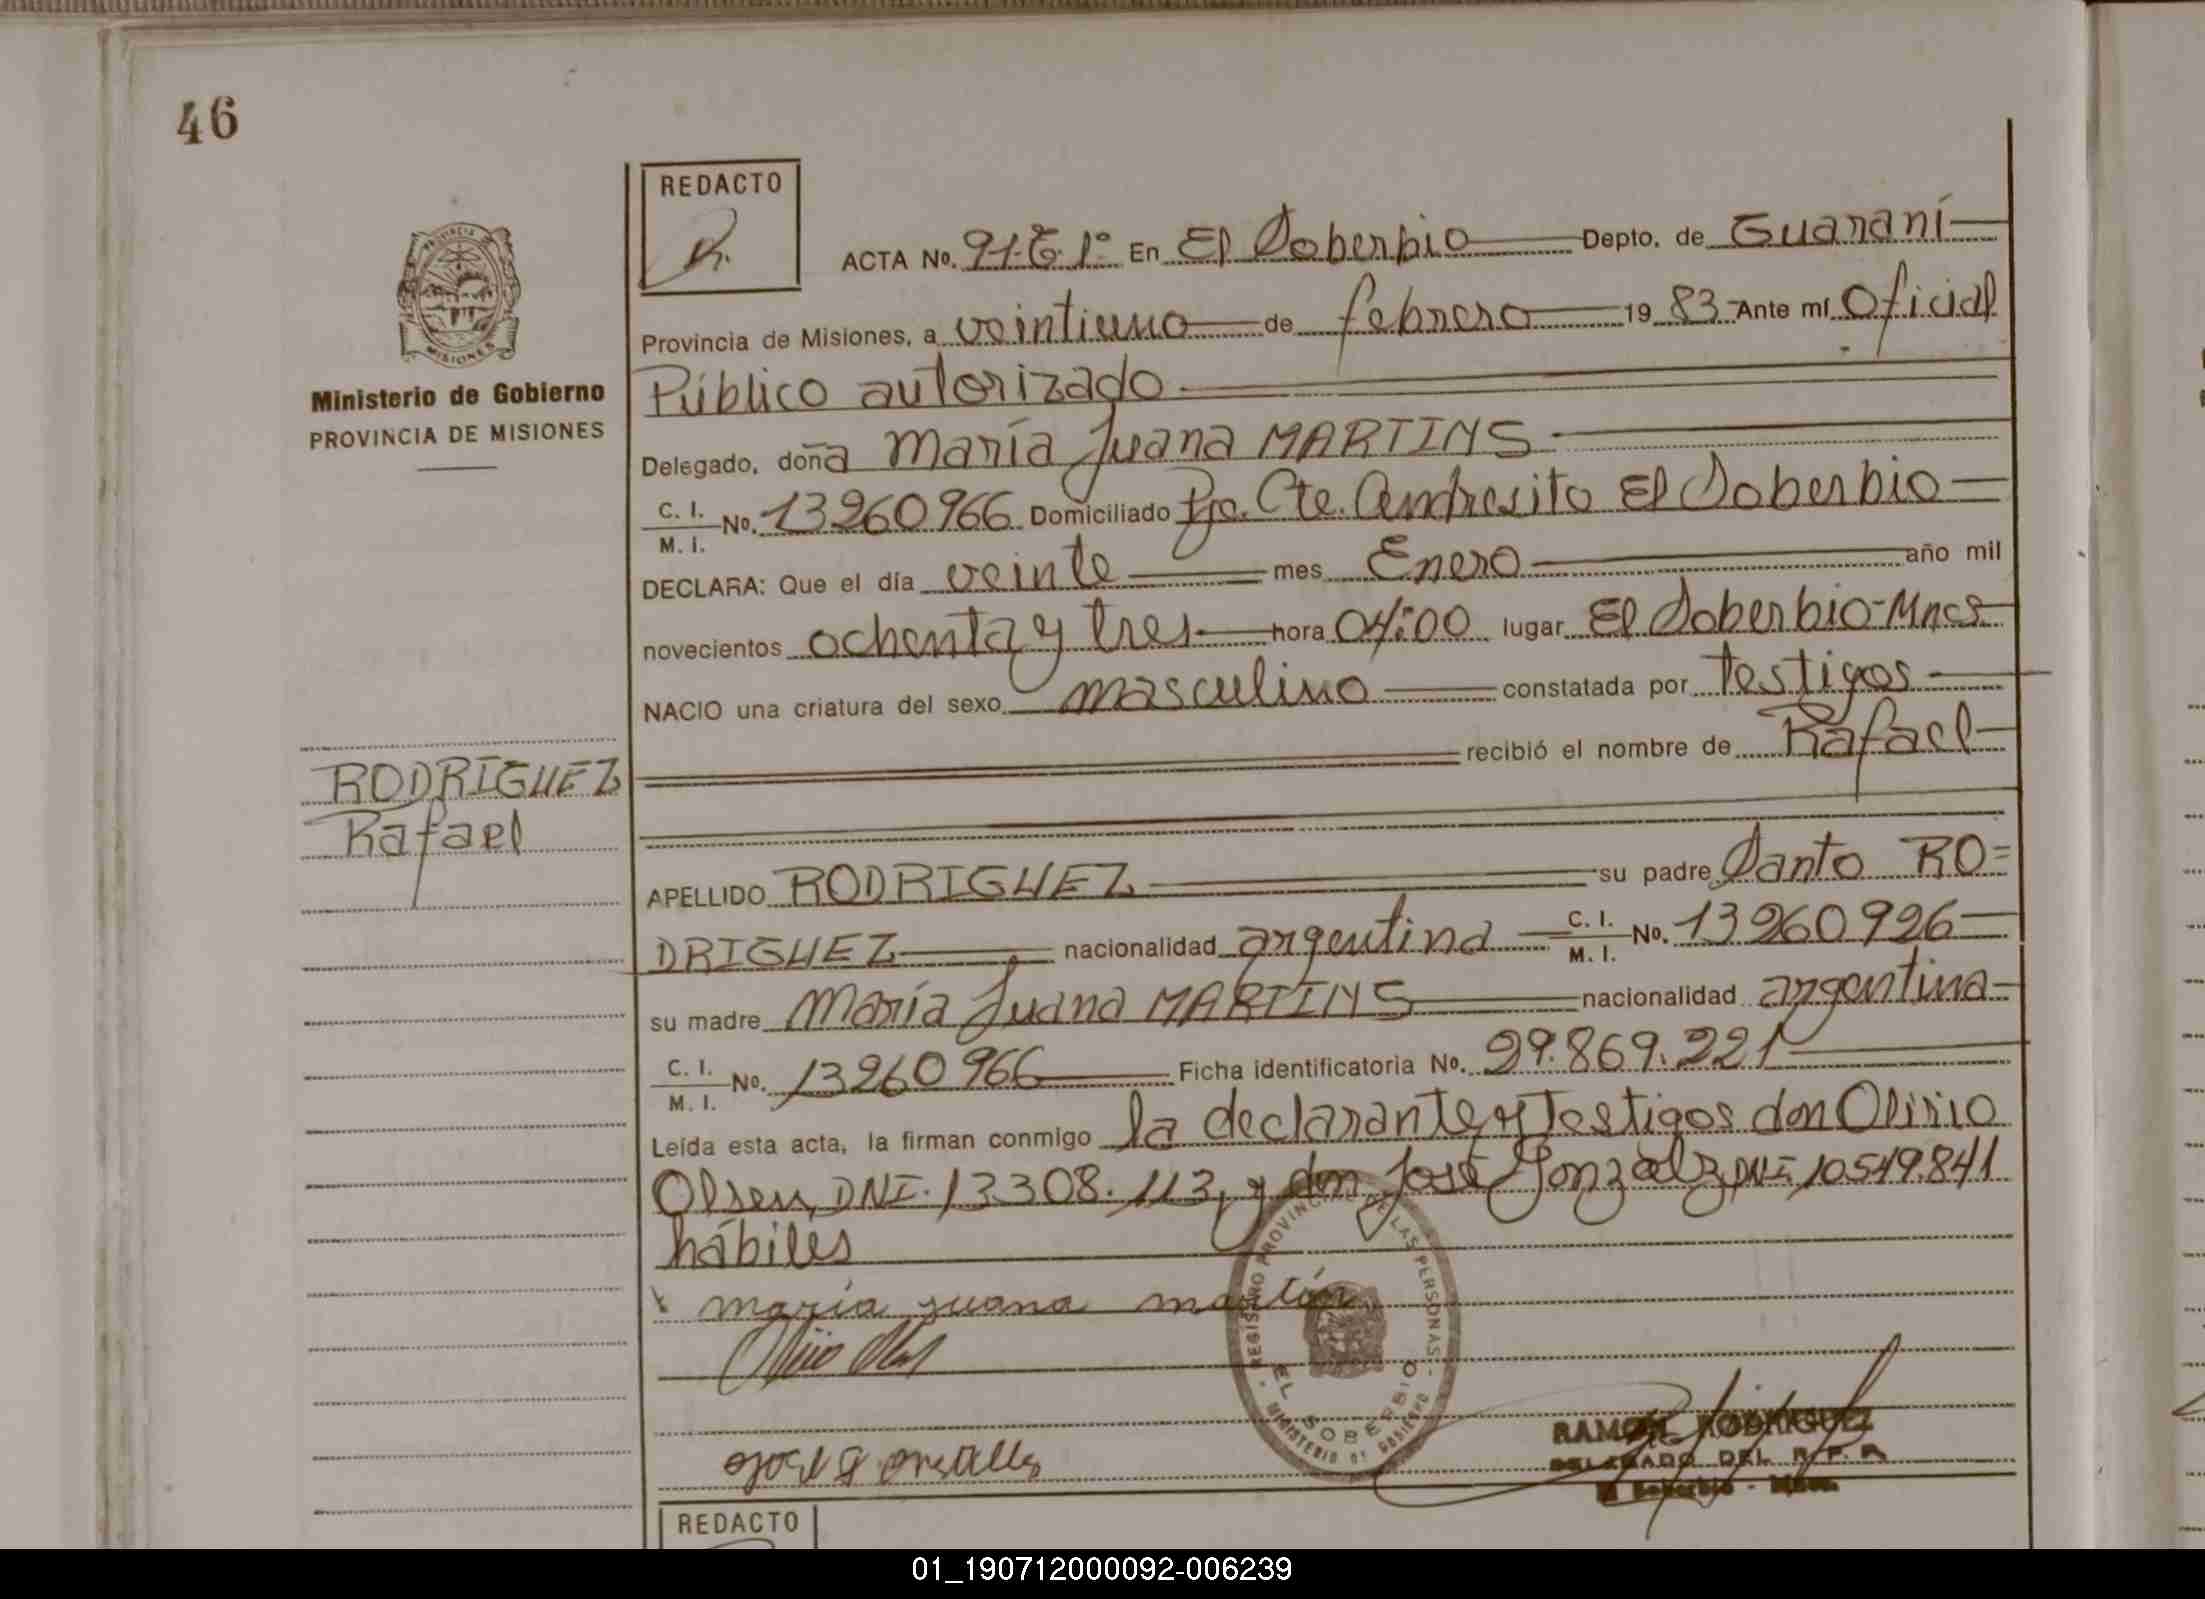 46
REDACTO
ACTA No. 91-T.1° En El Soberbio Depto. de Guaraní
Provincia de Misiones, a veintiuno de febrero 1983 Ante mí Oficial
Público autorizado
Ministerio de Gobierno
PROVINCIA DE MISIONES
PROVINCIA
MISIONES
Delegado, doña María Juana MARTINS
C. I.
M. I. No. 13260966 Domiciliado Pje. Cte. Andresito El Soberbio
DECLARA: Que el día veinte mes Enero año mil
novecientos ochenta y tres hora 04:00 lugar El Soberbio-Mnes
NACIO una criatura del sexo masculino constatada por testigos
recibió el nombre de Rafael
RODRIGUEZ
Rafael
APELLIDO RODRIGUEZ su padre Santo RO=
DRIGUEZ nacionalidad argentina C. I. M. I. No. 13260926
su madre María Juana MARTINS nacionalidad argentina
C. I.
M. I. No. 13260966 Ficha identificatoria No. 29.869.221
Leída esta acta, la firman conmigo la declarante y testigos don Olirio
Olsen, DNI. 13308.113, y don José Gonzalz DNI 10549.841
hábiles
maria juana martins
REGISTRO PROVINCIAL DE LAS PERSONAS
EL SOBERBIO
MINISTERIO DE GOBIERNO
RAMON RODRIGUEZ
DELEGADO DEL R. P. P.
El Soberbio - Mnes.
REDACTO
01_190712000092-006239